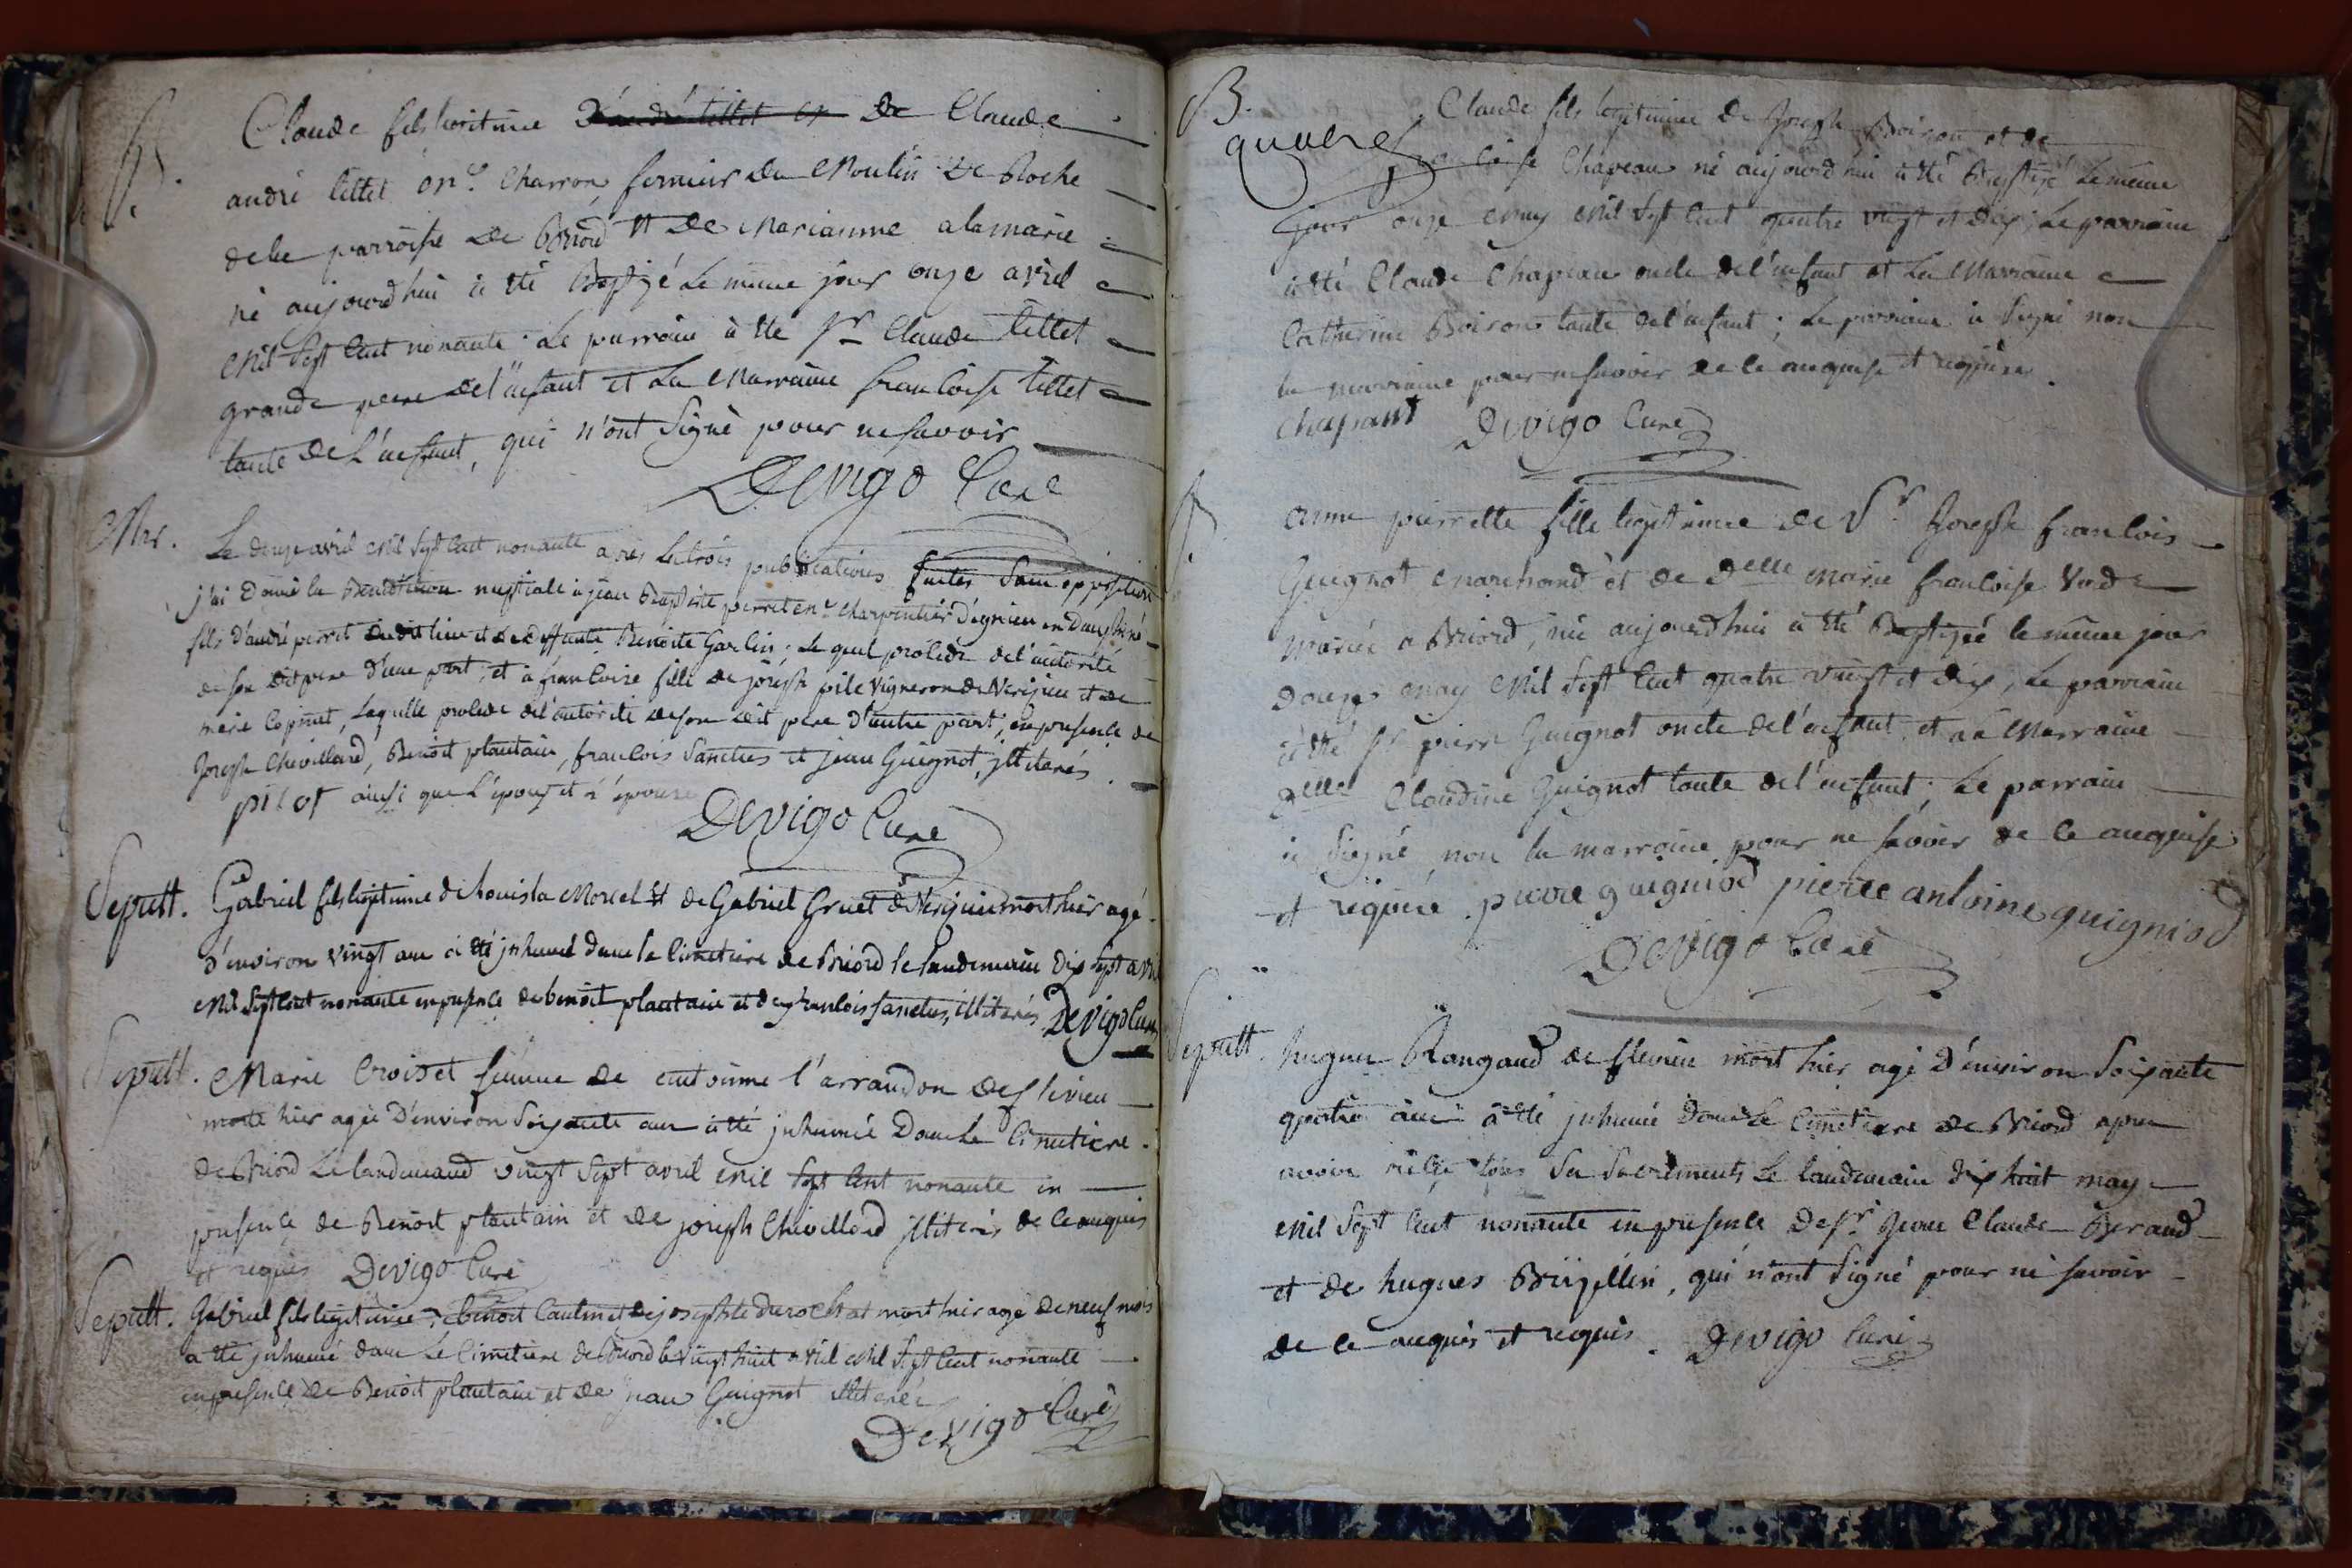 B. Claude fils legitime D'andré tillet et De Claude
andré tillet Mre. Charron fermier du Moulin De Roche
dela parroisse De Briord et De Marianne alamarie
né aujourd'hui à été Baptizé Le meme jour onze avril
Mil Sept Cent nonante. Le parrain à été Sr Claude tillet
grande pere del'enfant et La Marraine francoise tillet
tante De L'enfant, qui n'ont Signé pour ne savoir
Devigo Curé
Mar. Le douze avril Mil Sept Cent nonante apres les trois publications faites Sans opposition
j'ai Donné la Benediction nuptiale à jean Baptiste perret Charpentier D'
fils D'andré perret dudit lieu et de deffunte Benoite Garlin; Le quel procede del'autorité
de son dit pere d'une part; et à francoise fille de joseph pile vigneron de Verizieu et de
marie Copinet, Laquelle procede del'autorité de son dit pere d'autre part; en presence de
Joseph Chevillard, Benoit plantain, francois Sanctus et jean Guignot, jlliterés
pilot ainsi que L'époux et L'épouse
Devigo Curé
Sepult. Gabriel fils legitime de Louisa Morcel et de Gabriel Gruet de Verizieu mort hier agé
d'environ vingt ans à été jnhumé dans le Cimetiere de Briord le landemain dix sept avril
Mil Sept Cent nonante en presence de benoit plantain et de francois sanctus, illiterés Devigo Curé
Sepult. Marie Croiset femme de antoinne l'arrandon de flevieu
morte hier agée D'environ Soixante ans à été jnhumée Dans Le Cimetiere
de Briord Le landemaind vingt Sept avril Mil Sept Cent nonante en
presence de Benoit plantain et de joseph Chevillard jlliterés de Ce anquis
et requis Devigo Curé
Sepult. Gabriel fils legitime de benoit Cautin et de josephte durochat mort hier agé de neuf mois
a été jnhumé dans Le Cimetiere de Briord le vingt huit avril Mil Sept Cent nonante
en presence De Benoit plantain et de jean Guignot illiterés
Devigo Curé
B. Claude fils legitime De Joseph Boiron et de
francoise Chapeau né aujourd'hui à été Baptizé Le meme
jour onze May Mil Sept Cent quatre vingt et dix; Le parrain
à été Claude Chapeau oncle de l'enfant et La Marraine
Catherine Boiron tante del'enfant; Le parrain à Signé non
la marraine pour ne savoir de Ce anquise et requise.
chapant Devigo Curé
B. anne pierrette fille legitime de Sr. Joseph francois
Guignot Marchand et de Delle Marie francoise
Mariés a Briord, née aujourd'hui a été Baptizée le meme jour
Douze May Mil Sept Cent quatre vingt et dix; Le parrain
à été Sr pierre Guignot oncle del'enfant et La Marraine
Delle Claudine Guignot tante del'enfant; Le parrain
à Signé non la marraine pour ne savoir de Ce anquise
et requise. pierre guigniod pierre antoine guigniod
Devigo Curé
Sepult. hugues Rangaud de flevieu mort hier agé D'environ Soixante
quatre ans à été jnhumé Dans Le Cimetiere de Briord apres
avoir reçu tous Ses Sacrements Le landemain dix huit may
Mil Sept Cent nonante en presence De Sr. Jean Claude Beraud
et de hugues Brizellin, qui n'ont Signé pour ne savoir
de Ce anquis et requis. Devigo Curé